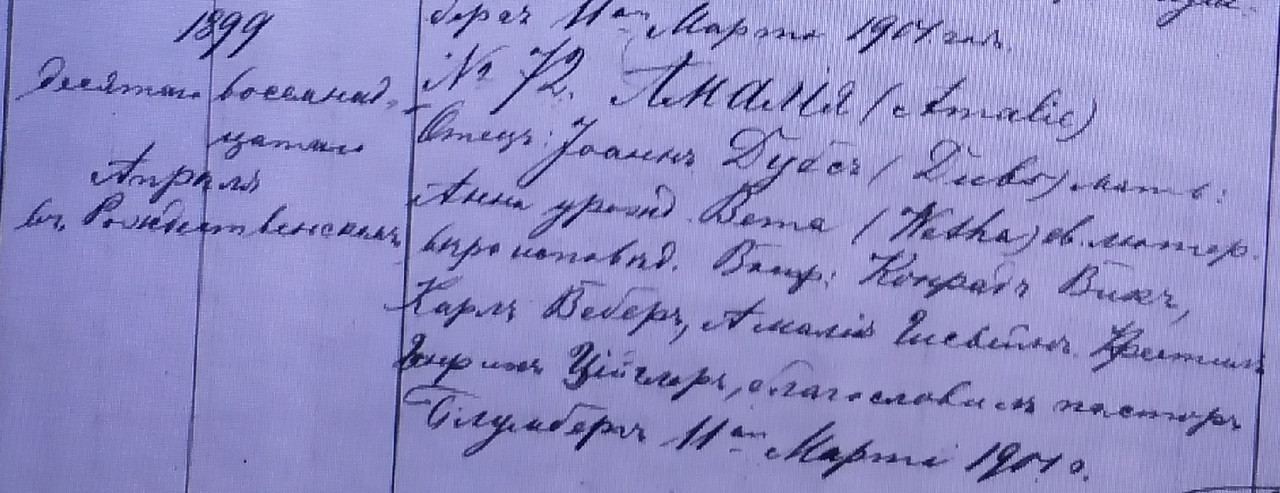 1899
десятаго восемнад-
цатаго
Апреля
въ Рождественскомъ
бергъ 11го Марта 1901 года
№ 72. АМАЛІЯ (Amalie)
Отецъ: Іоаннъ Дубсъ (Dubs) мать:
Анна урожд. Вета (Wetha) ев. лютер.
вѣроисповѣд. Воспр: Конрадъ Викъ,
Карлъ Веберъ, Амалія Крестилъ
Ційглеръ, благословилъ пасторъ
Блумбергъ 11го Марта 1901 г.